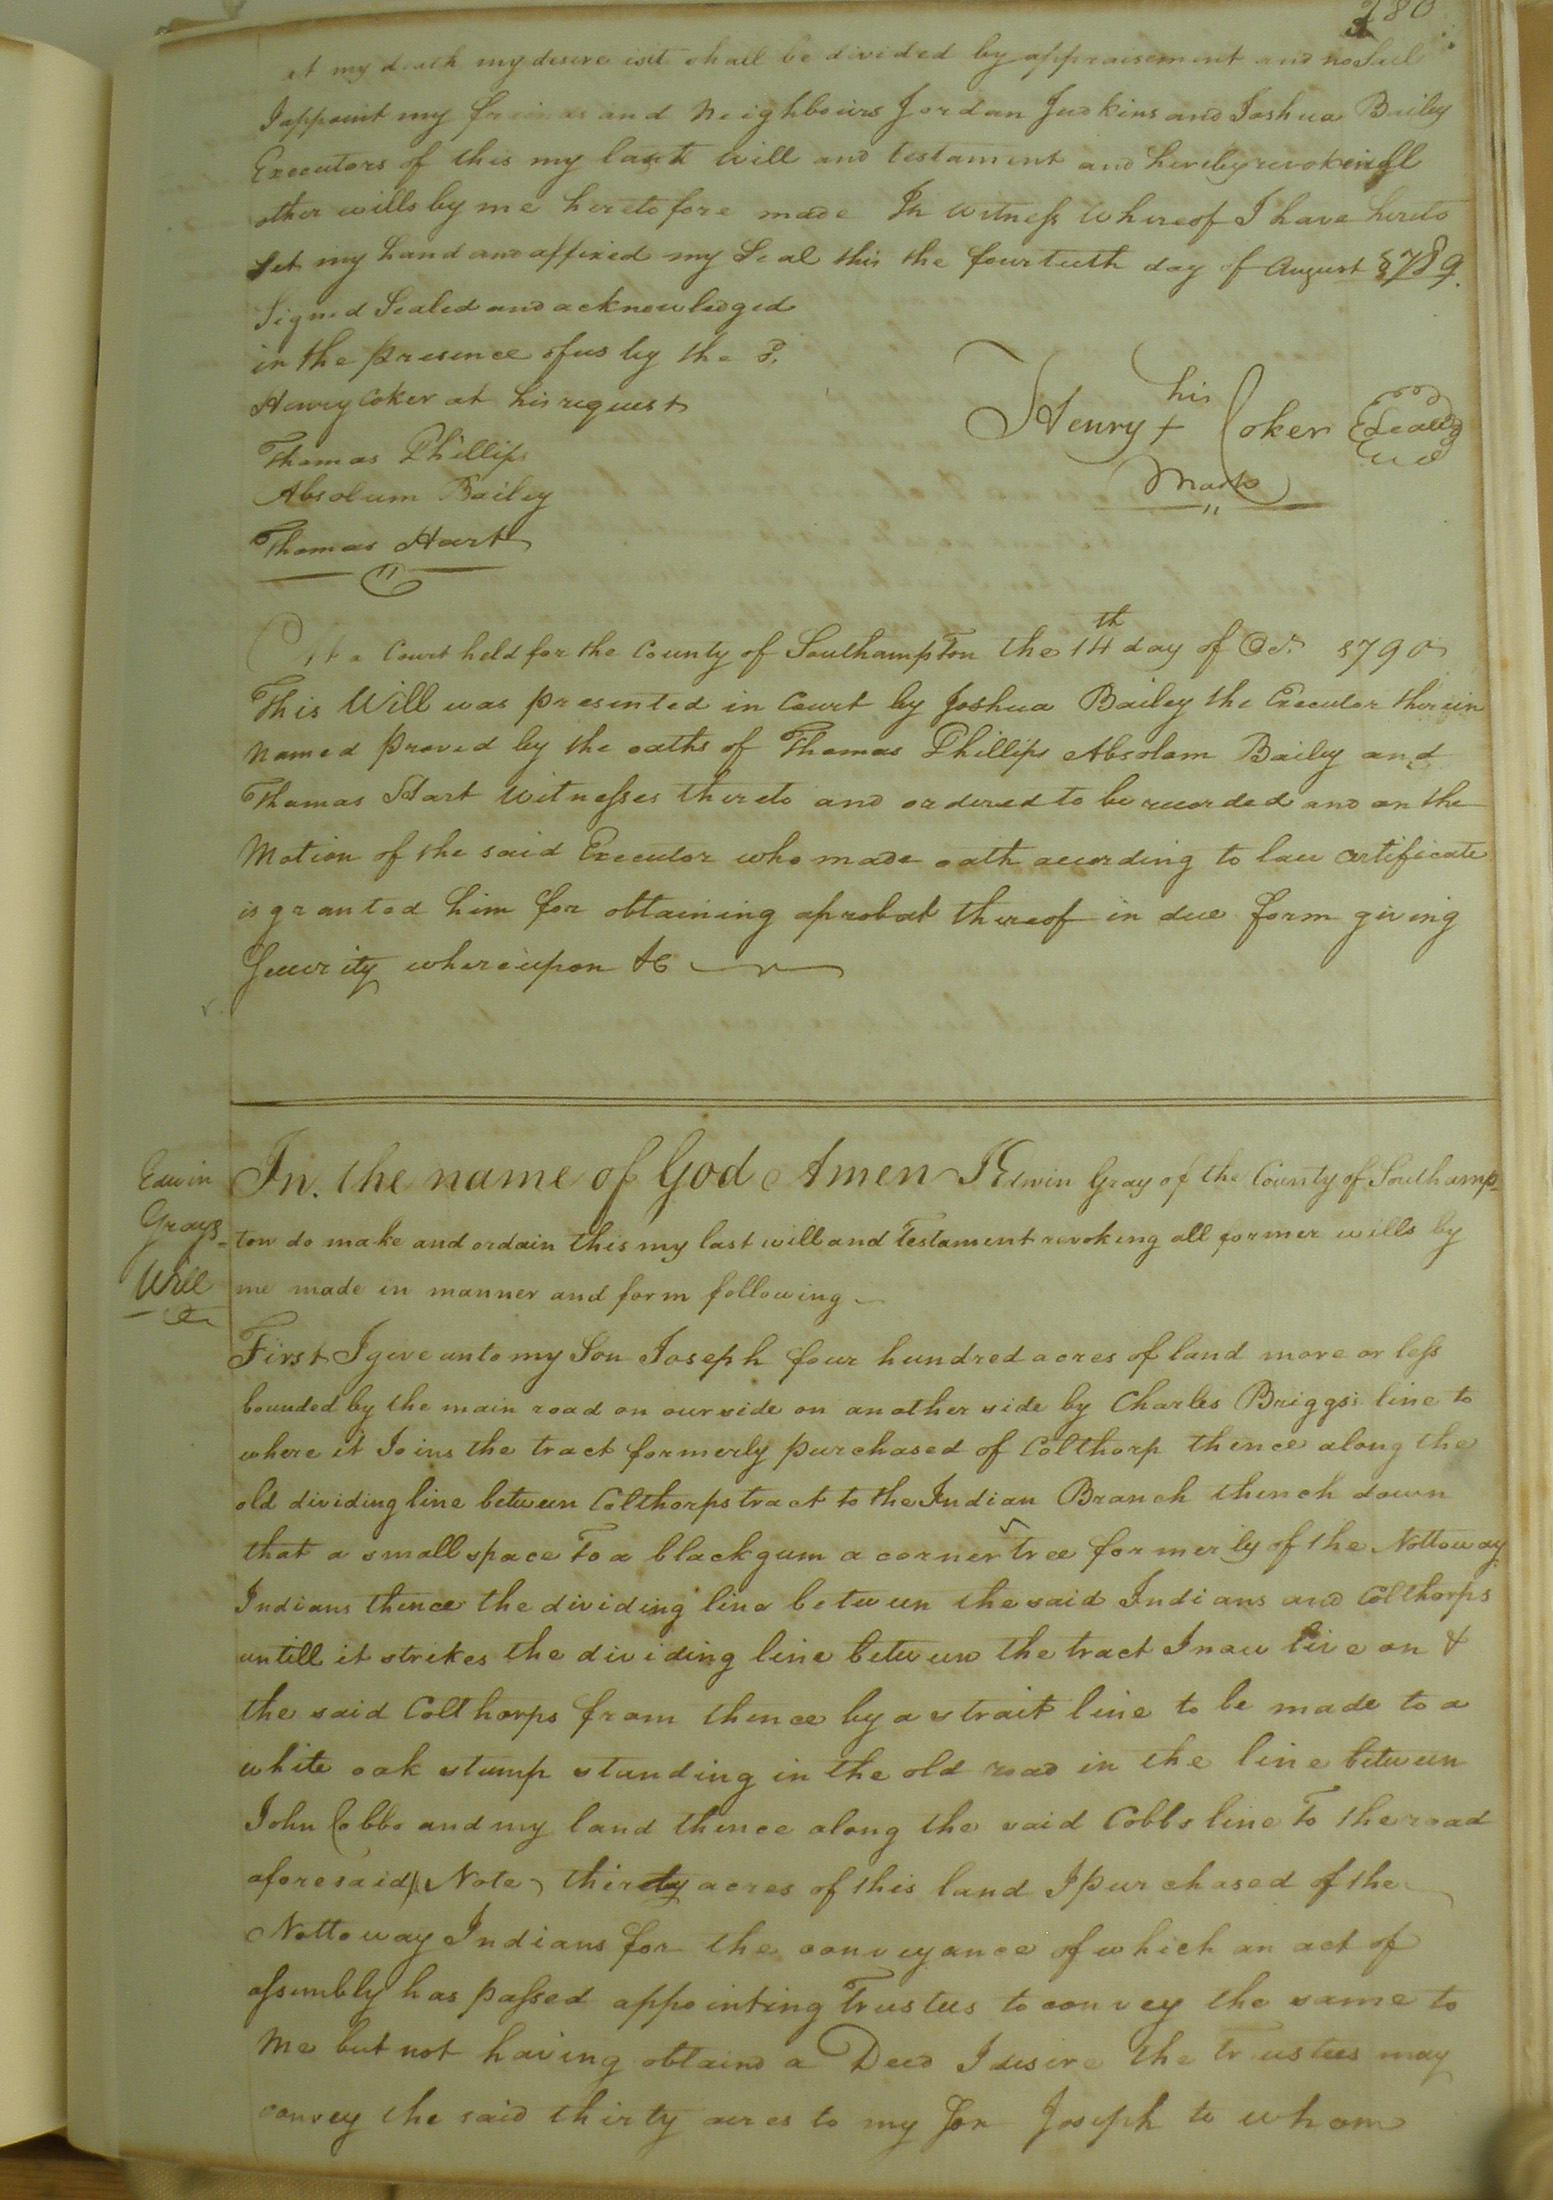 280
at my death my desire is it shall be divided by appraisement and no Sail
I appoint my friends and Neighbours Jordan Judkins and Joshua Bailey
Executors of this my last will and testament and hereby revoking all
other wills by me heretofore made In Witness Whereof I have hereto
Set my hand and affixed my Seal this the fourteeth day of August 1789.
Signed Sealed and acknowledged
in the presence of us by the S.
Henry Coker at his request
his
Henry + Coker Seal
Mark
Thomas Phillips
Absolum Bailey
Thomas Hart
At a Court held for the County of Southampton the 14th day of Oct. 1790
This Will was presented in Court by Joshua Bailey the Executor therein
Named Proved by the oaths of Thomas Phillips Absolam Bailey and
Thomas Hart Witnesses thereto and ordered to be recorded and on the
Motion of the said Executor who made oath according to law certificate
is granted him for obtaining aprobat thereof in due form giving
Security whereupon &c
Edwin
Grays
Will
In the name of God Amen I Edwin Gray of the County of Southamp-
ton do make and ordain this my last will and Testament revoking all former wills by
me made in manner and form following
First I give unto my Son Joseph four hundred acres of land more or less
bounded by the main road on our side on another side by Charles Briggs's line to
where it Joins the tract formerly purchased of Colthorp thence along the
old dividing line between Colthorps tract to the Indian Branch thench down
that a small space To a blackgum a corner tree formerly of the Nottoway
Indians thence the dividing line between the said Indians and Colthorps
untill it strikes the dividing line between the tract I now live on &
the said Colthorps from thence by a strait line to be made to a
white oak stump standing in the old road in the line between
John Cobbs and my land thence along the said Cobbs line To the road
aforesaid Note thirty acres of this land I purchased of the
Nottoway Indians for the conveyance of which an act of
assembly has passed appointing Trustees to convey the same to
Me but not having obtaind a Deed I desire the trustees may
convey the said thirty acres to my Son Joseph to whom